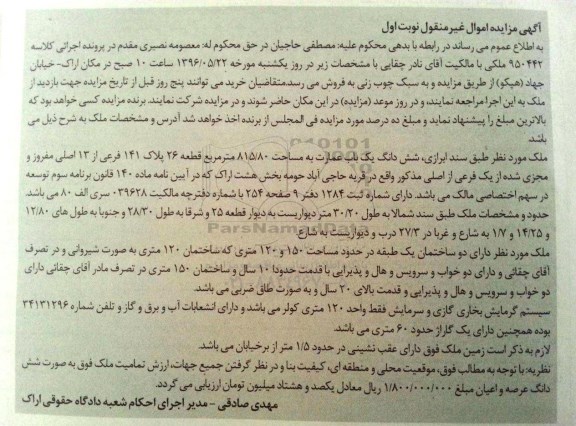 آگهی مزایده اموال غیر منقول نوبت اول
به اطلاع عموم می رساند در رابطه با بدهی محکوم علیه: مصطفی حاجیان در حق محکوم له: معصومه نصیری مقدم در پرونده اجرائی کلاسه
۹۵۰۴۴۲ ملکی با مالکیت آقای نادر چقایی با مشخصات زیر در روز یکشنبه مورخه ۱۳۹۶/۰۵/۲۲ ساعت ۱۰ صبح در مکان اراک- خیابان
جهاد (هپکو) از طریق مزایده و به سبک چوب زنی به فروش می رسد.متقاضیان خرید می توانند پنج روز قبل از تاریخ مزایده جهت بازدید از
ملک به این اجرا مراجعه نمایند، و در روز موعد (مزایده) در این مکان حاضر شوند و در مزایده شرکت نمایند. برنده مزایده کسی خواهد بود که
بالاترین مبلغ را پیشنهاد نماید و مبلغ ده درصد مورد مزایده فی المجلس از برنده اخذ خواهد شد آدرس و مشخصات ملک به شرح ذیل می
باشد.
ملک مورد نظر طبق سند ابرازی، شش دانگ یک باب عمارت به مساحت ۸۱۵/۸۰ مترمربع قطعه ۲۶ پلاک ۱۴۱ فرعی از ۱۳ اصلی مفروز و
مجزی شده از یک فرعی از اصلی مذکور واقع در قریه حاجی آباد حومه بخش هشت اراک که در آیین نامه ماده ۱۴۰ قانون برنامه سوم توسعه
در سهم اختصاصی مالک می باشد. دارای شماره ثبت ۱۲۸۴ دفتر ۹ صفحه ۲۵۴ با شماره دفترچه مالکیت ۰۳۹۶۲۸ سری الف ۸۰ می باشد.
حدود و مشخصات ملک طبق سند شمالا به طول ۳۰/۲۰ متر دیواریست به دیوار قطعه ۲۵ و شرقا به طول ۲۸/۳۰ و جنوبا به طول های ۱۲/۸۰
و ۱۴/۲۵ و ۱/۷ به شارع و غربا در ۲۷/۳ درب و دیواریست به شارع.
ملک مورد نظر دارای دو ساختمان یک طبقه در حدود مساحت ۱۵۰ و ۱۲۰ متری که ساختمان ۱۲۰ متری به صورت شیروانی و در تصرف
آقای چقائی و دارای دو خواب و سرویس و هال و پذیرایی با قدمت حدودا ۱۰ سال و ساختمان ۱۵۰ متری در تصرف مادر آقای چقائی دارای
دو خواب و سرویس و هال و پذیرایی و قدمت بالای ۲۰ سال و به صورت طاق ضربی می باشد.
سیستم گرمایش بخاری گازی و سرمایش فقط واحد ۱۲۰ متری کولر می باشد و دارای انشعابات آب و برق و گاز و تلفن شماره ۳۴۱۳۱۲۹۶
بوده همچنین دارای یک گاراژ حدود ۶۰ متری می باشد.
لازم به ذکر است زمین ملک فوق دارای عقب نشینی در حدود ۱/۵ متر از برخیابان می باشد.
نظریه: با توجه به مطالب فوق، موقعیت محلی و منطقه ای، کیفیت بنا و در نظر گرفتن جمیع جهات، ارزش تمامیت ملک فوق به صورت شش
دانگ عرصه و اعیان مبلغ ۱/۸۰۰/۰۰۰/۰۰۰ ریال معادل یکصد و هشتاد میلیون تومان ارزیابی می گردد.
مهدی صادقی - مدیر اجرای احکام شعبه دادگاه حقوقی اراک